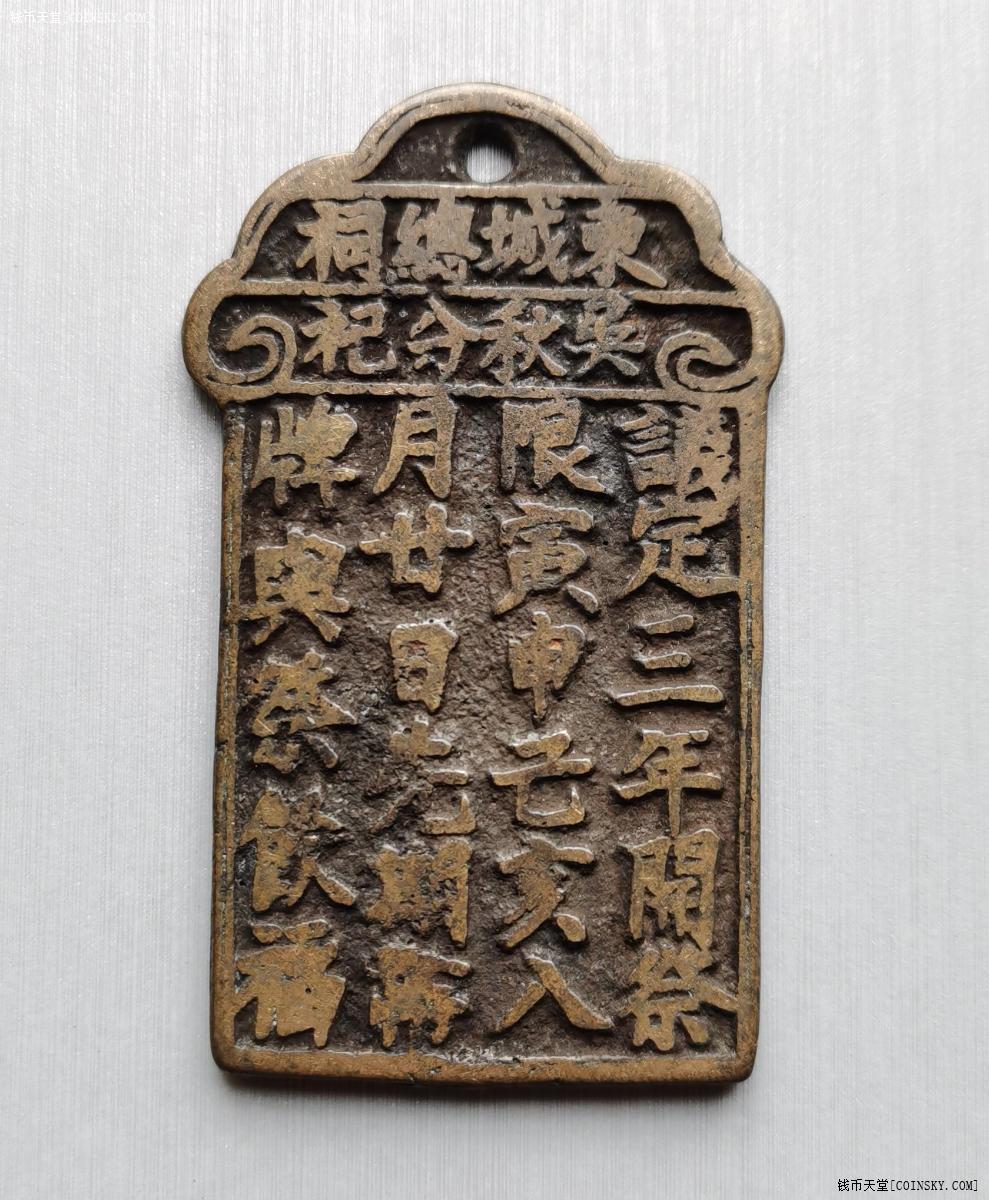 钱币天堂[COINSKY.COM]
東城總祠
吳秋分祀
定三年開祭
限寅申巳亥八
月廿日先期
牌與祭飲福
钱币天堂[COINSKY.COM]